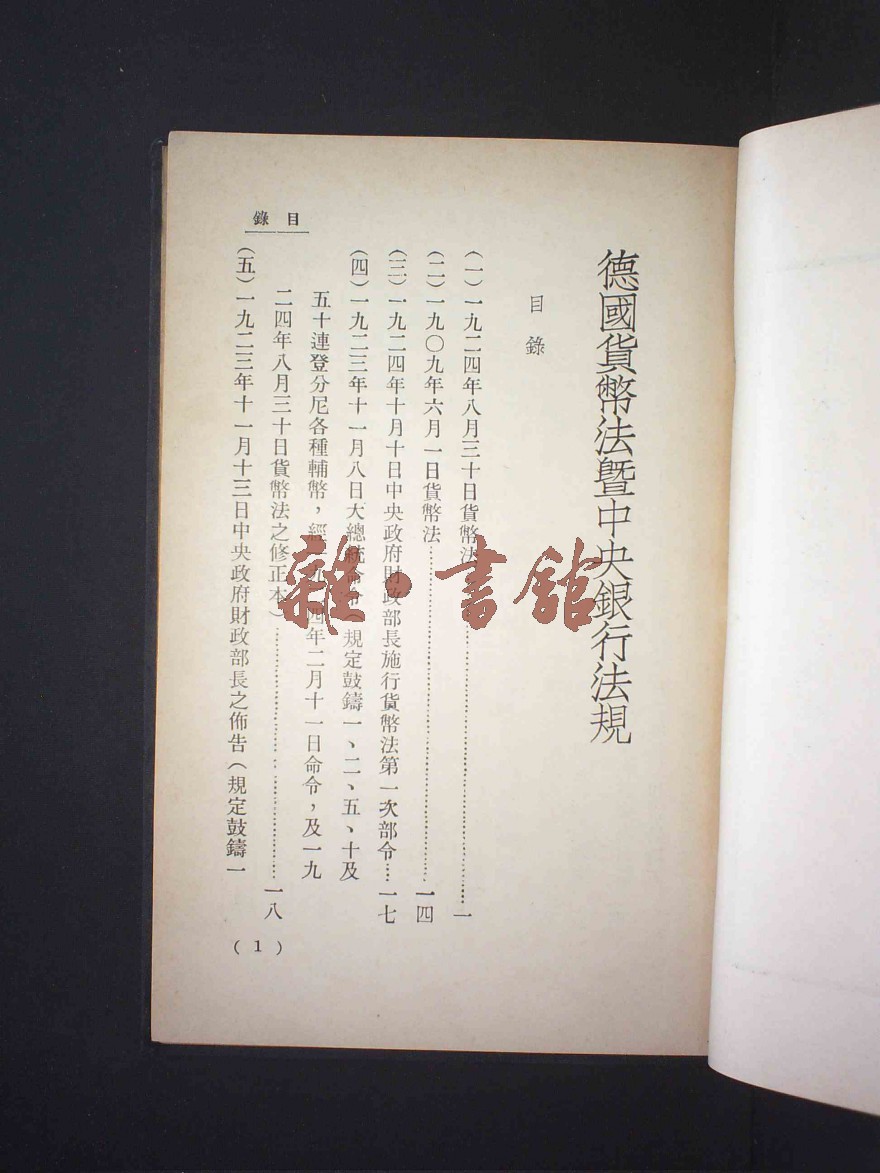 德國貨幣法暨中央銀行法規
目錄
(一)一九二四年八月三十日貨幣法……一
(二)一九〇九年六月一日貨幣法……一四
(三)一九二四年十月十日中央政府財政部長施行貨幣法第一次部令……一七
(四)一九二三年十一月八日大總統命令(規定鼓鑄一、二、五、十及
五十連登分尼各種輔幣,經一九二四年二月十一日命令,及一九
二四年八月三十日貨幣法之修正本)……一八
(五)一九二三年十一月十三日中央政府財政部長之佈告(規定鼓鑄一
目錄
(1)
雜·書館